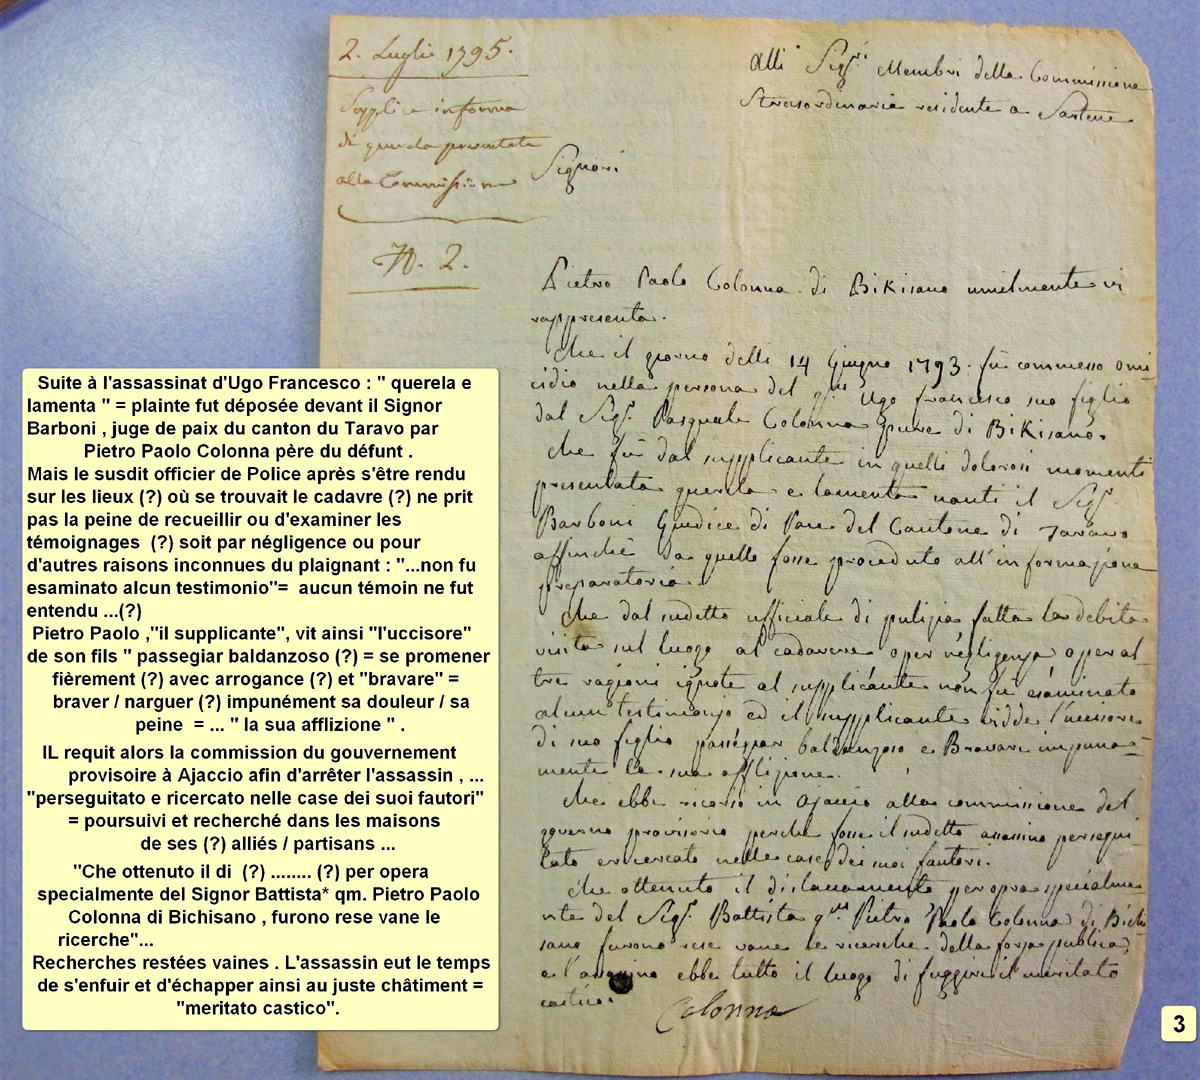 2. Luglio 1795.
Supplica informa
di querela presentata
alla Commissione
N. 2.
Alli Sigri Membri della Commissione
Straordinaria residente a Sartene
Signori
Pietro Paolo Colonna di Bikisano umilmente vi
rappresenta.
Che il giorno delli 14 Giugno 1793. fù commesso omi
cidio nella persona del qm Ugo Francesco suo figlio
dal Sigr. Pasquale Colonna pure di Bikisano.
che fù dal supplicante in quelli dolorosi momenti
presentata querela e lamenta nanti il Sigr.
Barboni Giudice di Pace del Cantone di Taravo
affinchè da quello fosse proceduto all'informazione
preparatoria.
Che dal sudetto ufficiale di pulizia fatta la debita
visita sul luogo al cadavere o per négligenza o per al_
tre ragioni ignote al supplicante non fu esaminato
alcun testimonio ed il supplicante vidde l'uccisore
di suo figlio passegiar baldanzoso e Bravare impuna_
mente la sua afflizione.
che ebbe ricorso in Ajaccio alla commissione del
governo provisorio perche fosse il sudetto assassino persegui
tato e ricercato nelle case dei suoi fautori.
che ottenuto il distaccamento per opra specialme
nte del Sigr. Battista qm Pietro Paolo Colonna di Bichi
sano furono rese vane le ricerche della forza publica,
e l'assasino ebbe tutto il luogo di fuggire il meritato
castico.
Colonna
Suite à l'assassinat d'Ugo Francesco : " querela e
lamenta " = plainte fut déposée devant il Signor
Barboni , juge de paix du canton du Taravo par
Pietro Paolo Colonna père du défunt .
Mais le susdit officier de Police après s'être rendu
sur les lieux (?) où se trouvait le cadavre (?) ne prit
pas la peine de recueillir ou d'examiner les
témoignages (?) soit par négligence ou pour
d'autres raisons inconnues du plaignant : "...non fu
esaminato alcun testimonio"= aucun témoin ne fut
entendu ...(?)
Pietro Paolo ,"il supplicante", vit ainsi "l'uccisore"
de son fils " passegiar baldanzoso (?) = se promener
fièrement (?) avec arrogance (?) et "bravare" =
braver / narguer (?) impunément sa douleur / sa
peine = ... " la sua afflizione " .
IL requit alors la commission du gouvernement
provisoire à Ajaccio afin d'arrêter l'assassin , ...
"perseguitato e ricercato nelle case dei suoi fautori"
= poursuivi et recherché dans les maisons
de ses (?) alliés / partisans ...
"Che ottenuto il di (?) ........ (?) per opera
specialmente del Signor Battista* qm. Pietro Paolo
Colonna di Bichisano , furono rese vane le
ricerche"...
Recherches restées vaines . L'assassin eut le temps
de s'enfuir et d'échapper ainsi au juste châtiment =
"meritato castico".
3